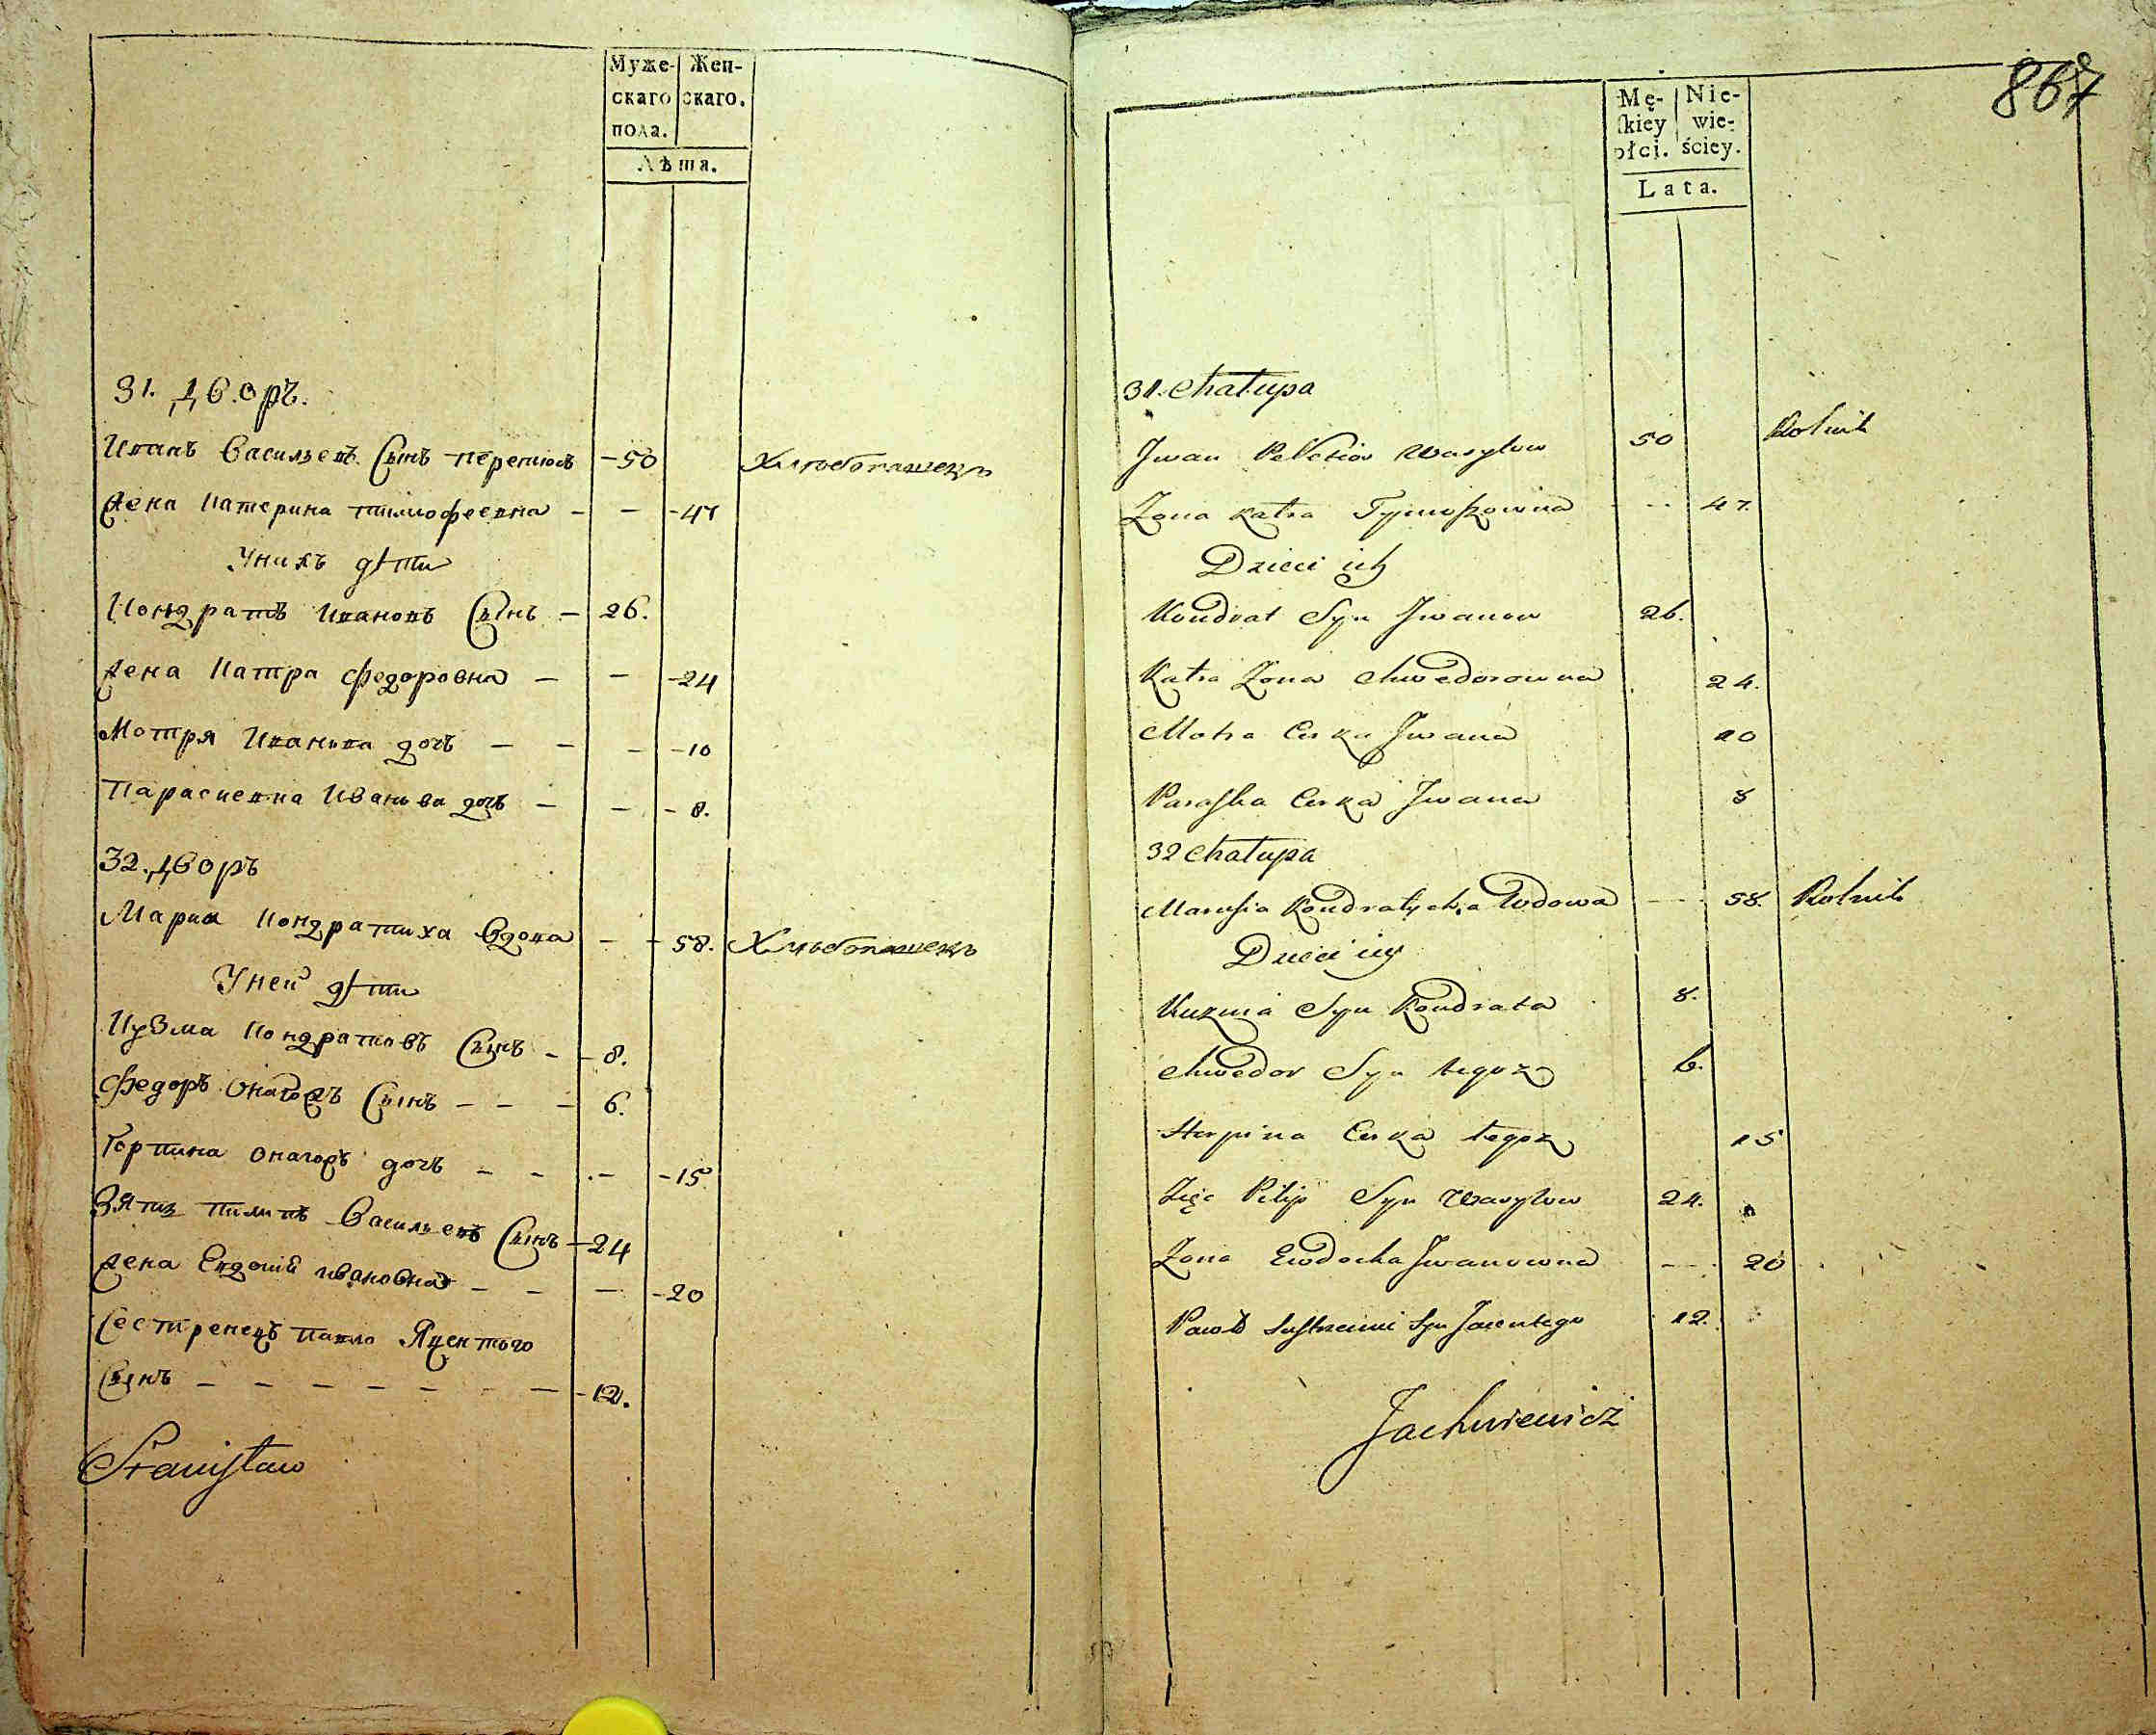 Муже- Жен-
скаго скаго.
пола.
Лѣта.
31. Дворъ.
Иванъ Васильевъ Сынъ -50 Хлѣбопашецъ
Жена Катерина Тимофеевна - - -47
Унихъ дѣти
Кондратъ Ивановъ Сынъ - 26.
Жена Катра Федоровна - - -24
Мотря Иванова дочъ - - - -10
Парасковна Иванова дочъ - - - 8.
32. Дворъ
Мария Кондратиха Вдова - - 58. Хлѣбопашецъ
Уней дѣти
Кузма Кондратовъ Сынъ - - 8.
Федоръ Онагожъ Сынъ - - - 6.
Горпина онагожъ дочъ - - - -15
Зять Пилипъ Васильевъ Сынъ -24
Жена Евдокия Ивановна - - - -20
Сестренецъ Павло Яцентого
Сынъ - - - - - - - -12.
Stanisław
867
Mę- Nie-
ſkiey wie-
płci. ściey.
Lata.
31. Chałupa
Jwan Wasylow 50 Rolnik
Zona Katra Tymoszowna - - 47.
Dzieci ich
Kondrat Syn Jwanow 26.
Katra Zona Chwedorowna 24.
Motra Curka Jwana 10
Paraſka Curka Jwana 8
32 Chałupa
Marusia Kondratycha Wdowa - - - 58. Rolnik
Dzieci iey
Kuzma Syn Kondrata 8.
Chwedor Syn tegoz 6.
Horpina Curka tegoz 15
Zięc Pilip Syn Wasylow 24.
Zona Ewdocha Jwanowna - - - 20
Pawło Syn Jacentego 12.
Jachniewicz